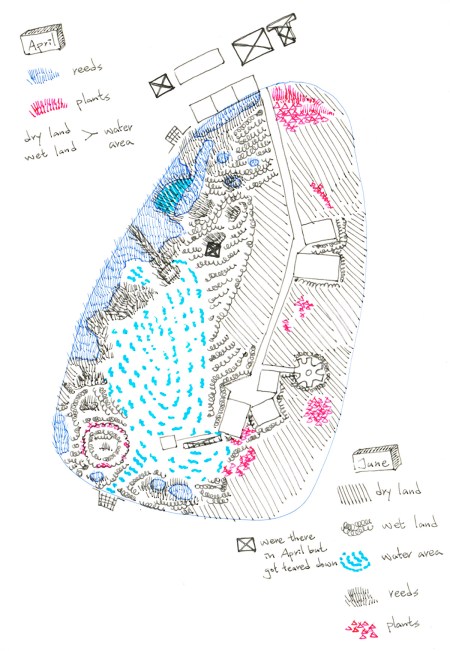 April
reeds
plants
dry land > water
wet land area
June
dry land
wet land
water area
reeds
plants
were there
in April but
got teared down